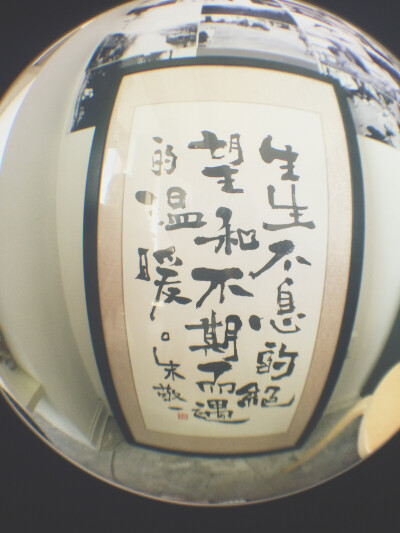 生生不息的絕
望和不期而遇
的温暖～。
朱敬一